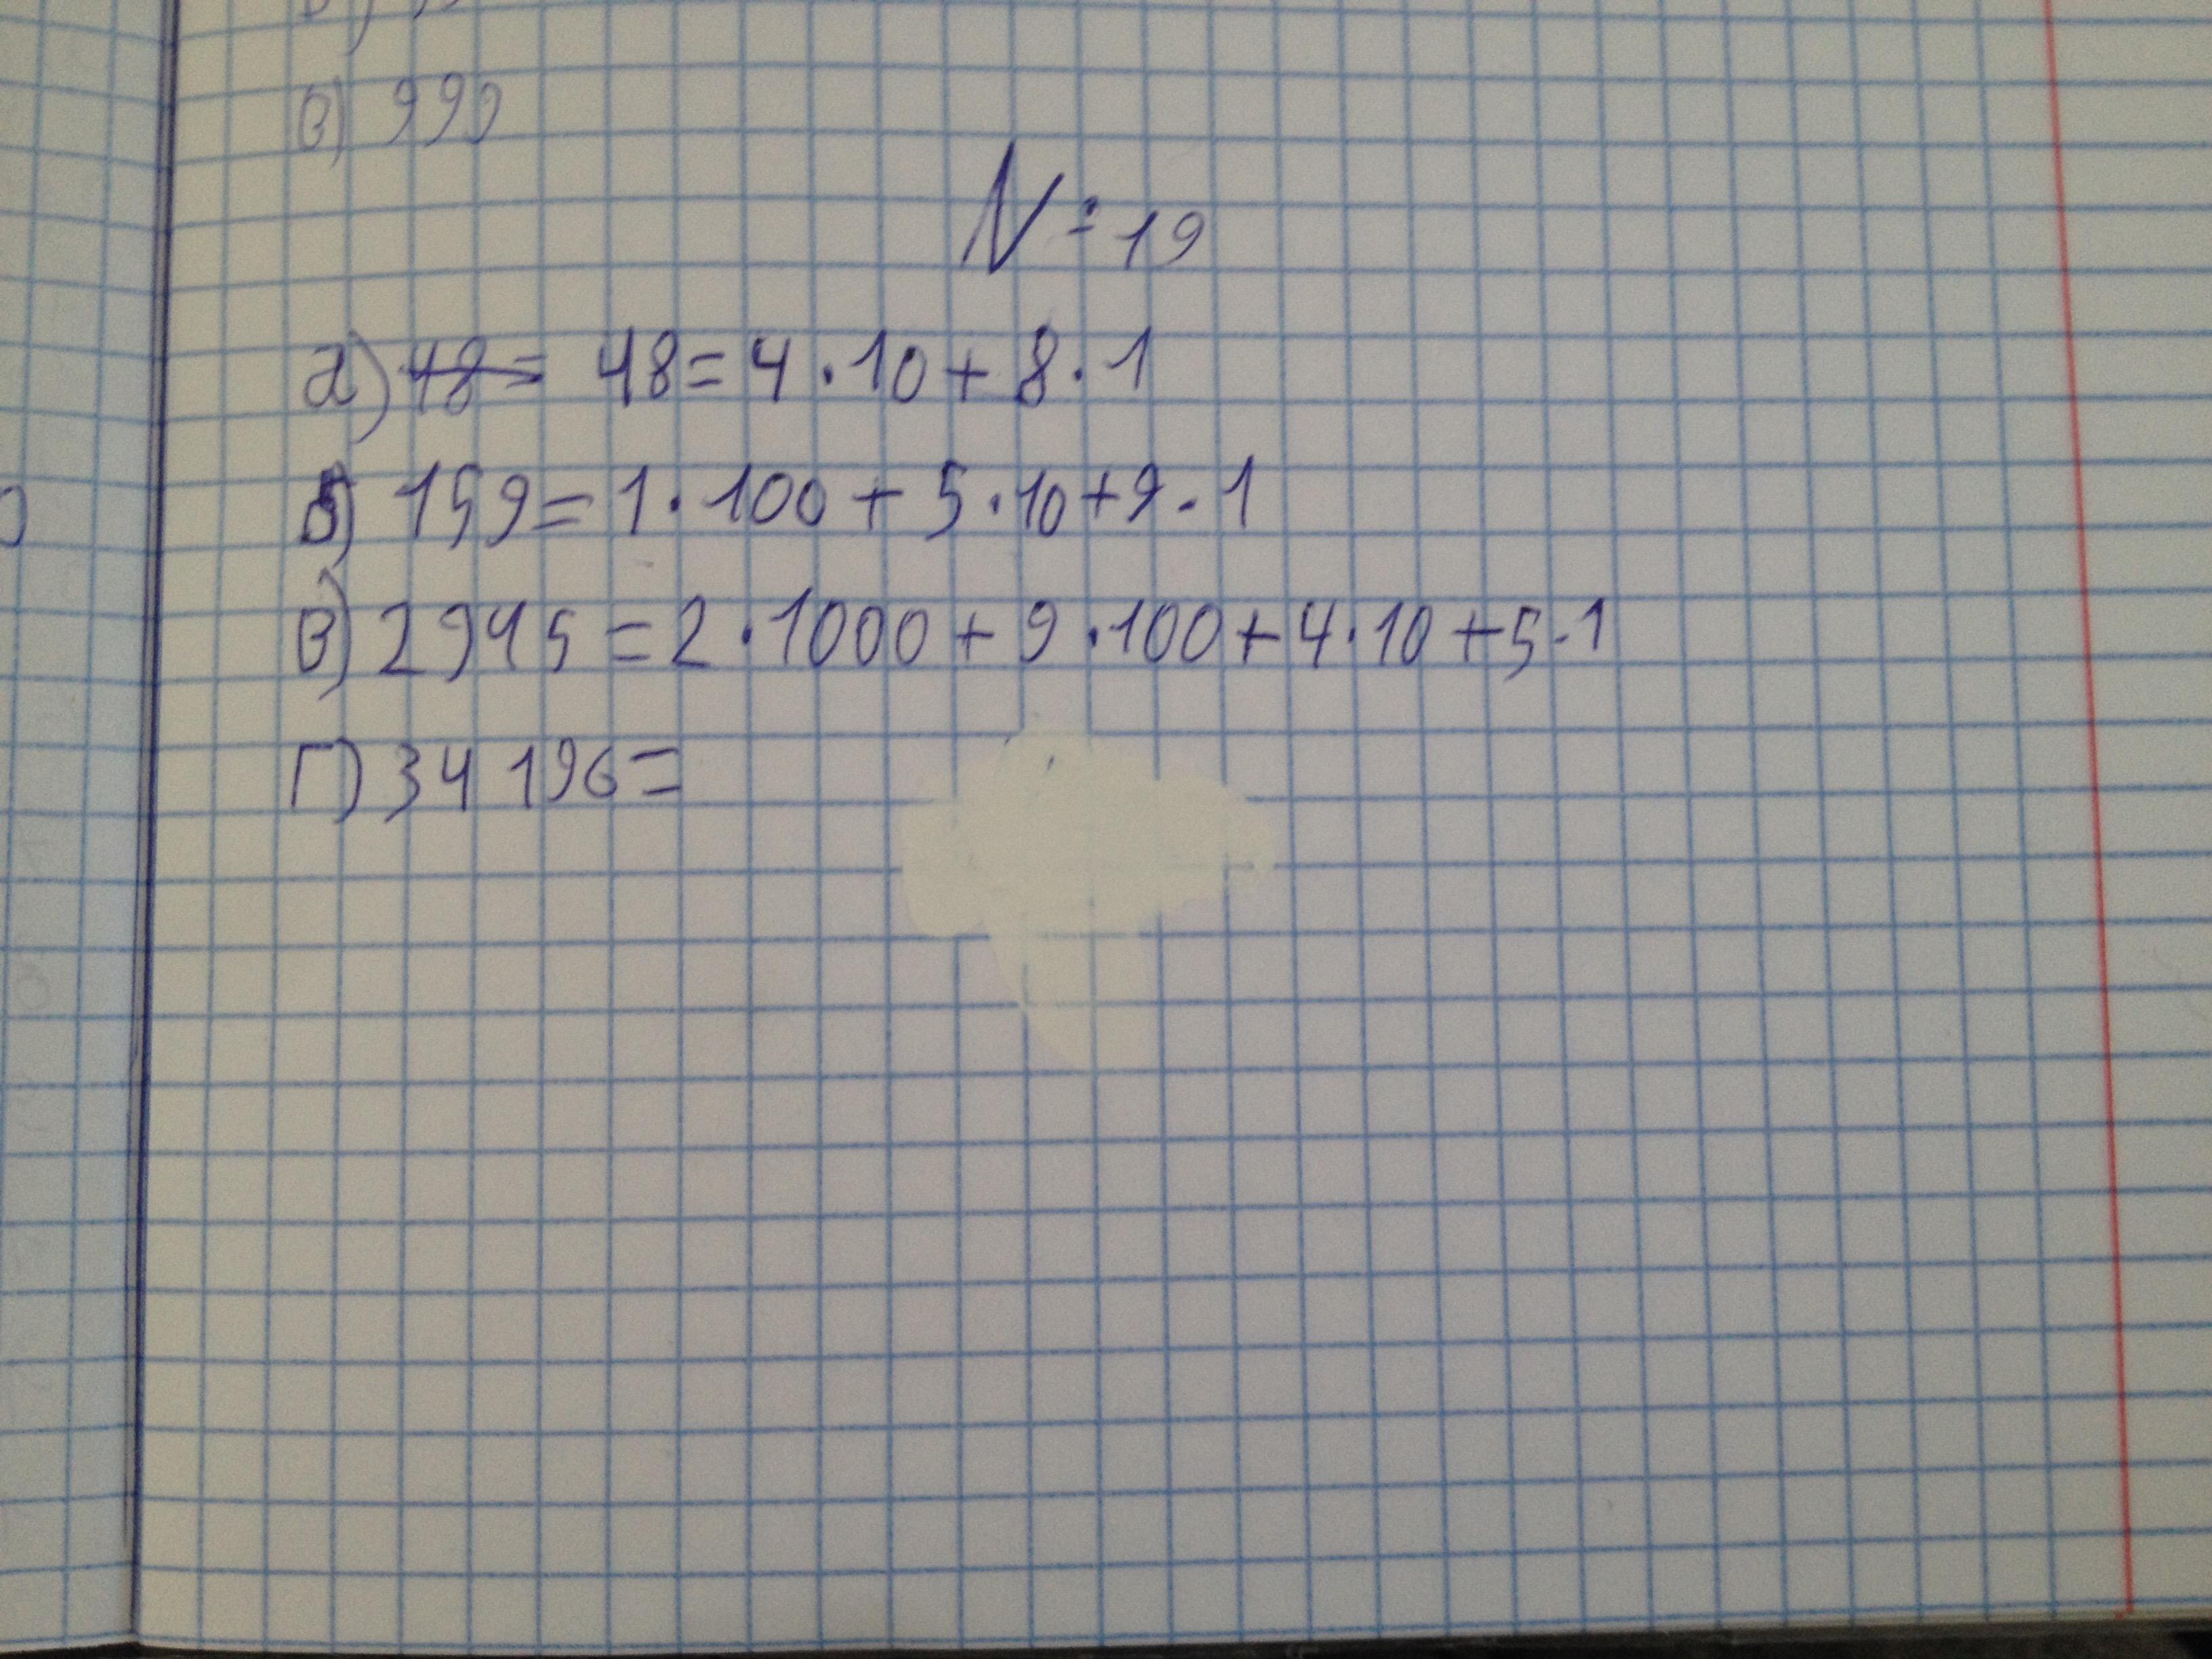 в) 999
№19
а) 48= 48=4·10+8·1
б) 159=1·100+5·10+9·1
в) 2945=2·1000+9·100+4·10+5·1
г) 34 196=